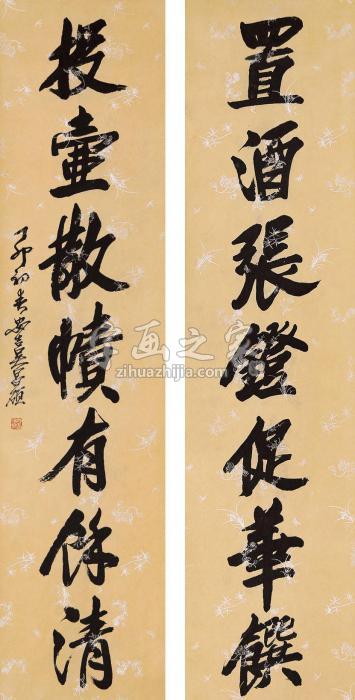 置酒張鐙促華饌
投壺散帙有餘清
丁卯初春安吉吳昌碩
字画之家
zihuazhijia.com